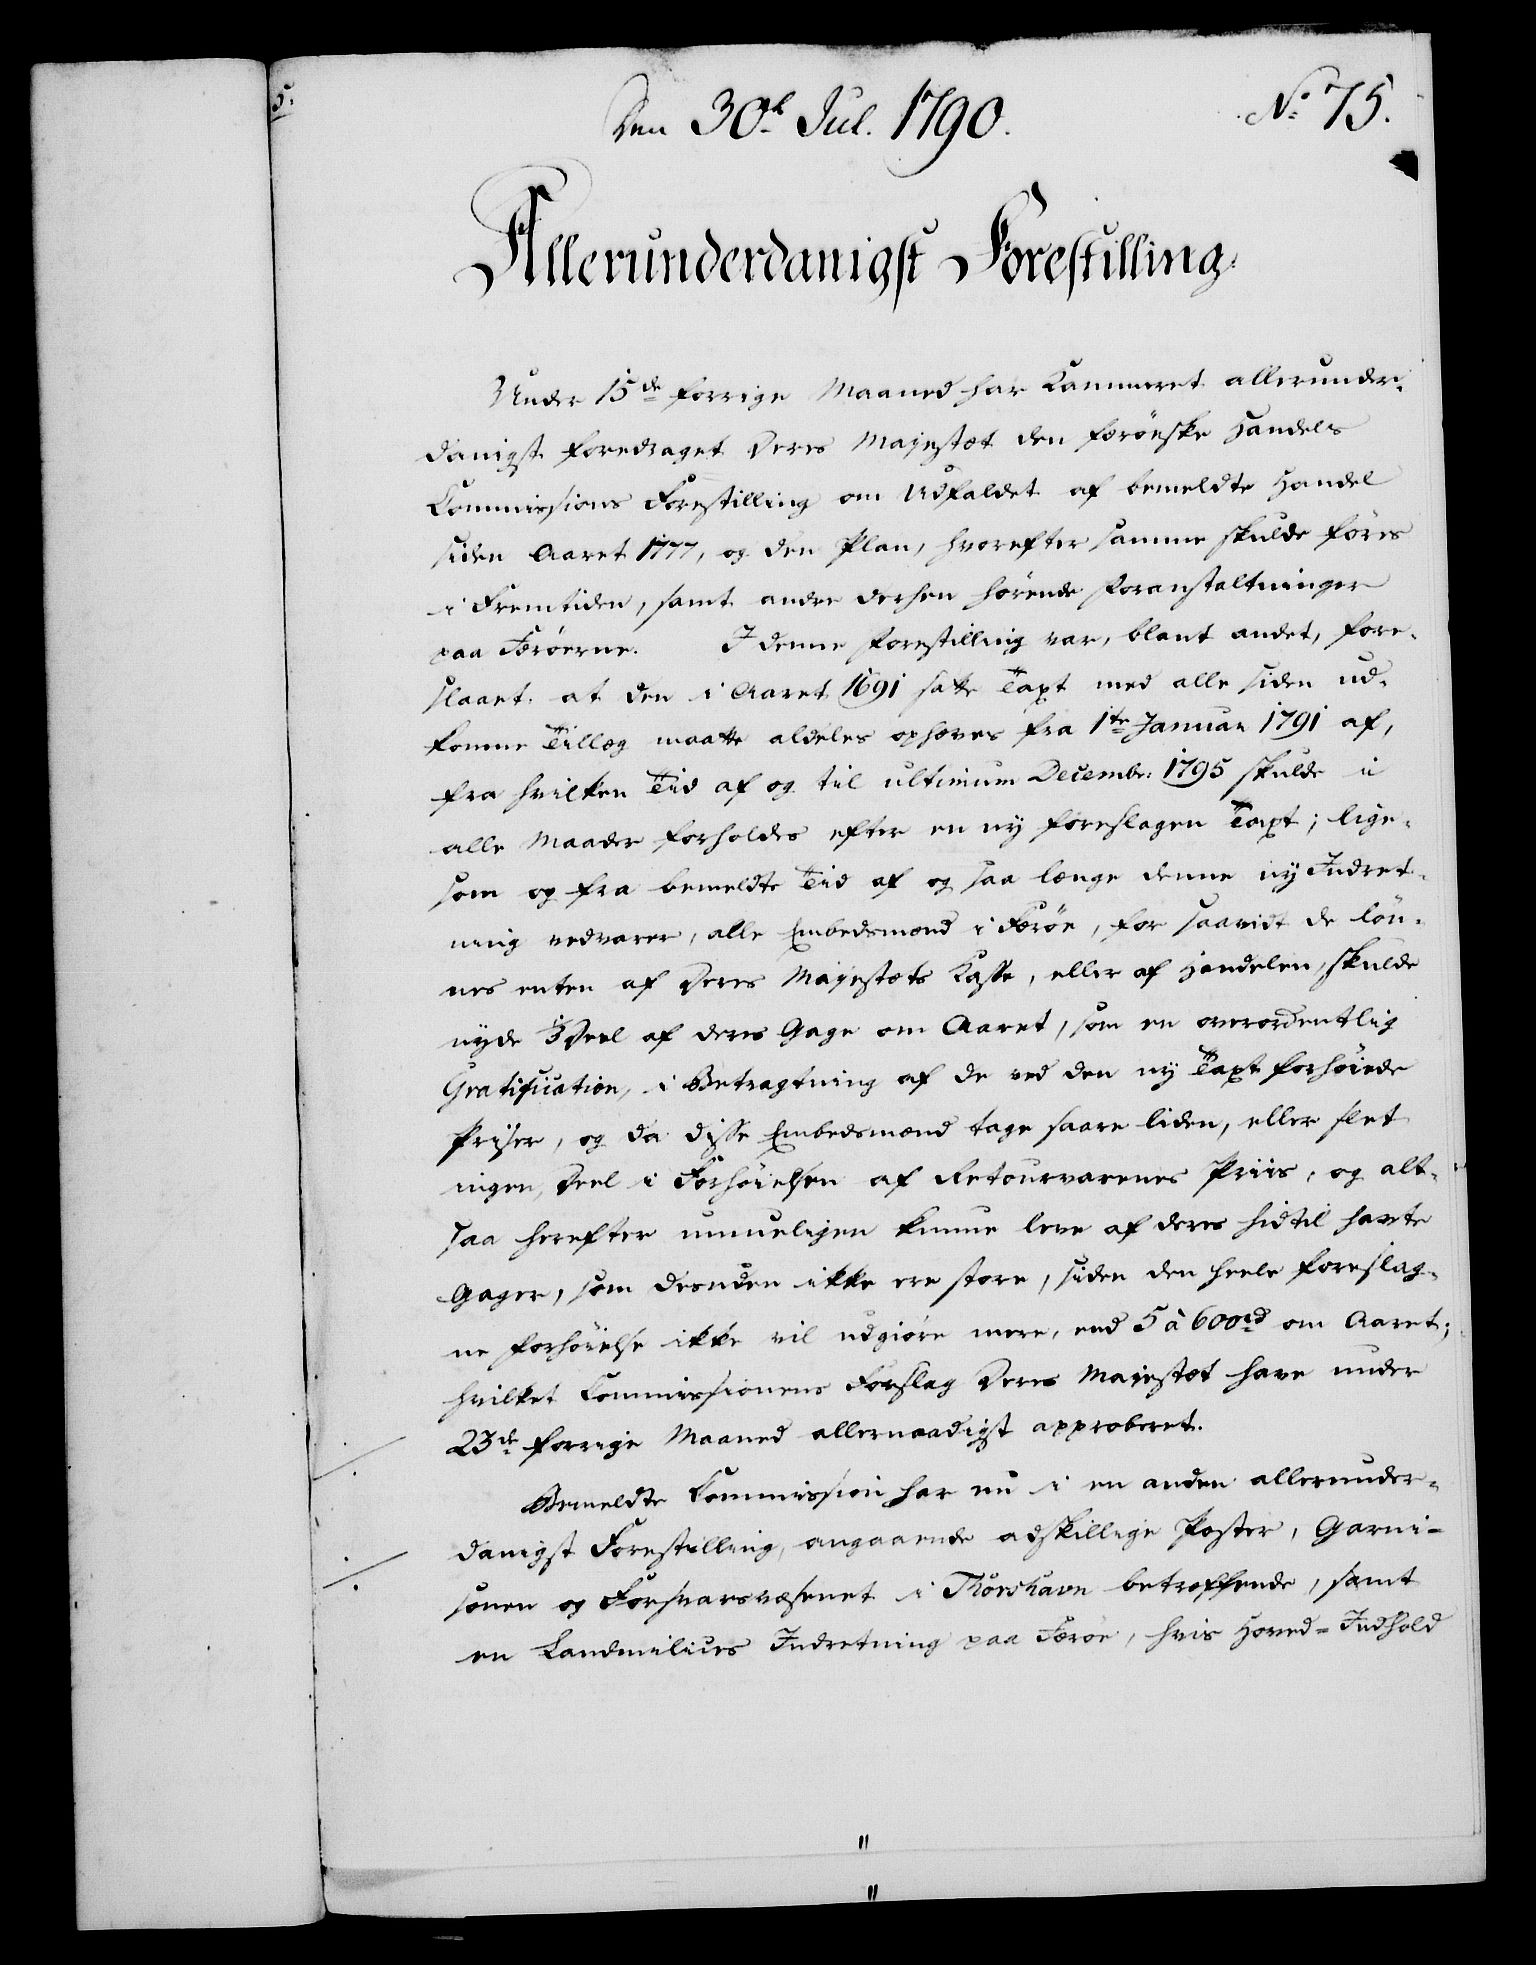 5.
Den 30te Jul. 1790.
No: 75.
Allerunderdanigst Forestilling.
Under 15de forrige Maaned har Kammeret allerunder-
danigst foredraget Deres Majestæt den færöeske Handels
Commissions Forestilling om Udfaldet af bemeldte Handel
siden Aaret 1777, og den Plan, hvorefter samme skulde föres
i Fremtiden, samt andre derhen hörende Foranstaltninger
paa Færöerne. I denne Forestilling var, blant andet, fore-
slaaet at den i Aaret 1691 satte Taxt med alle siden ud-
komne Tillæg maatte aldeles ophæves fra 1te Januar 1791 af,
fra hvilken Tiid af og til ultimum Decembr: 1795 skulde i
alle Maader forholdes efter en ny foreslagen Taxt; lige-
som og fra bemeldte Tiid af og saa længe denne ny Indret-
ning vedvarer, alle Embedsmænd i Færöe, for saavidt de lön-
nes enten af Deres Majestæts Kasse, eller af Handelen, skulde
nyde ⅓ Deel af deres Gage om Aaret, som en overordentlig
Gratification, i Betragtning af de ved den ny Taxt forhöiede
Priser, og da disse Embedsmænd tage saare liden, eller slet
ingen, Deel i Forhöielsen af Retourvarenes Priis, og alt-
saa herefter umueligen kunne leve af deres hidtil havte
Gager, som desuden ikke ere store, siden den heele foreslag-
ne Forhöielse ikke vil udgiöre mere, end 5 à 600rd om Aaret;
hvilket Commissionens Forslag Deres Majestæt have under
23de forrige Maaned allernaadigst approberet.
Bemeldte Kommission har nu i en anden allerunder-
danigst Forestilling, angaaende adskillige Poster, Garni-
sonen og Forsvarsvæsenet i Thorshavn betreffende, samt
en Landmilices Indretning paa Færöe, hvis Hoved-Indhold